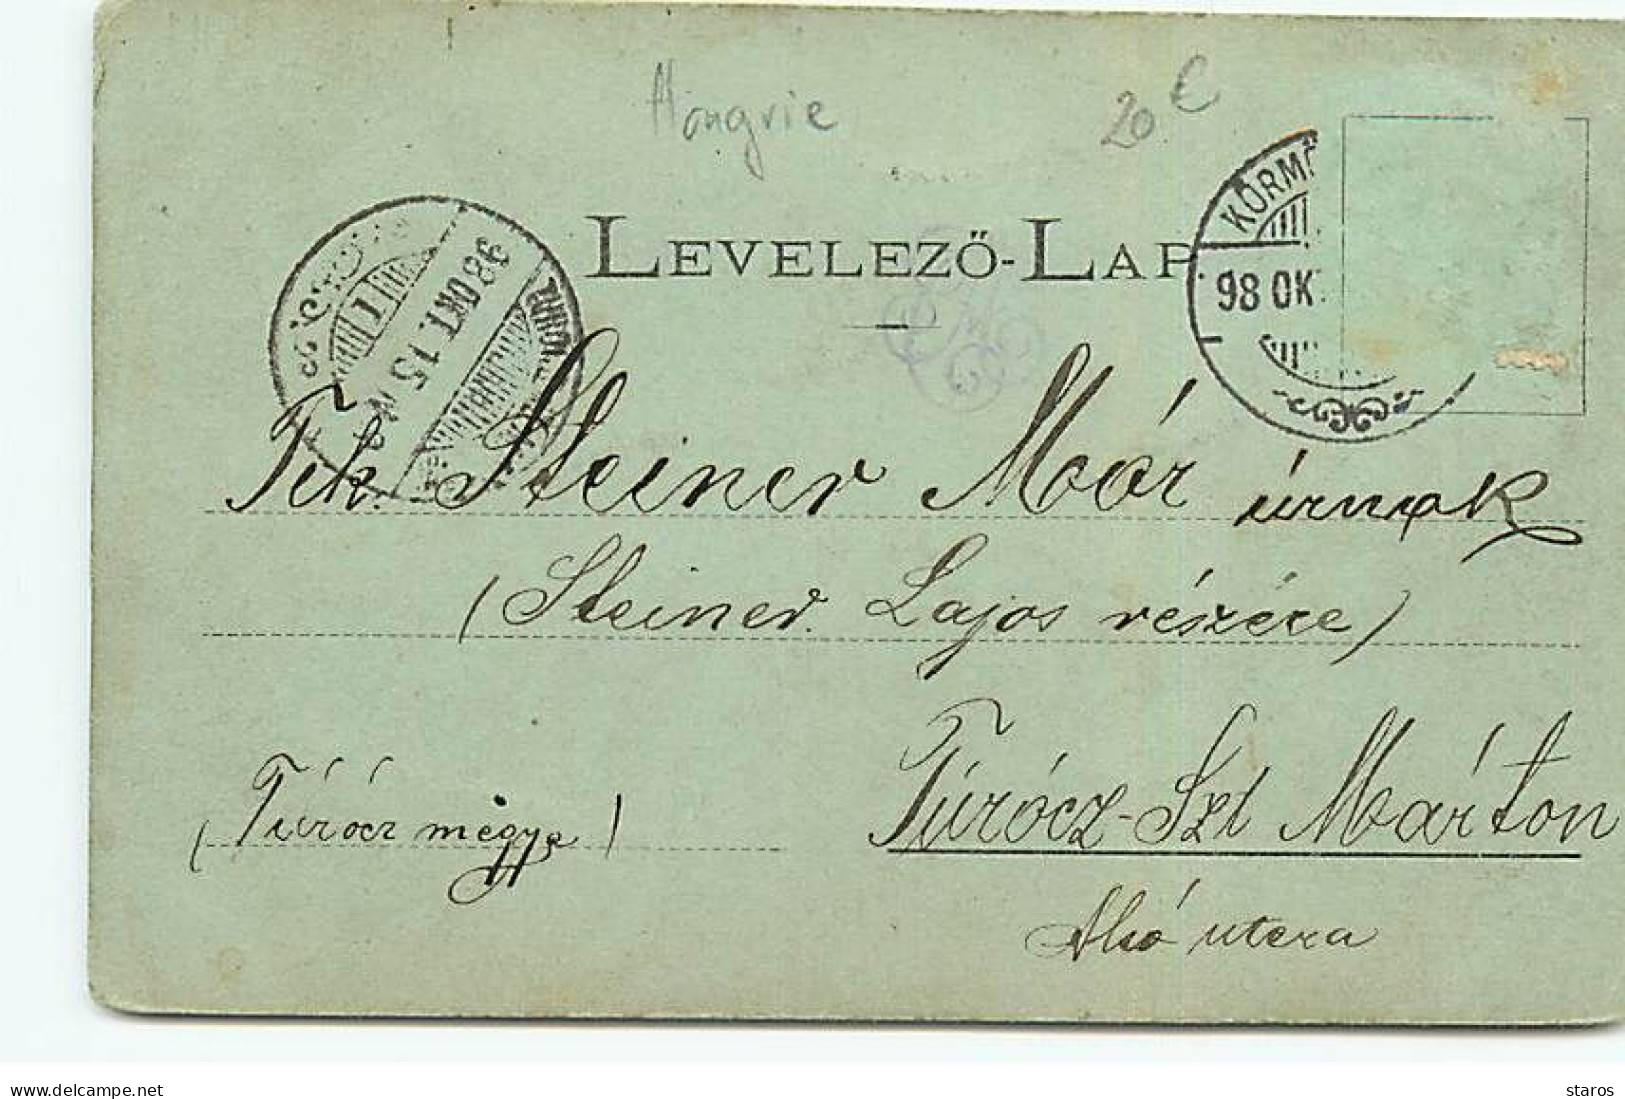 Hongrie
20 €
LEVELEZŐ-LAP
KÖRMÖ
98 OK
98 OKT. 15
Tek. Steiner Mór úrnak
(Steiner Lajos részére)
Túrócz-Szt Márton
(Túrócz mégye)
Alsó utcza
www.delcampe.net
staros